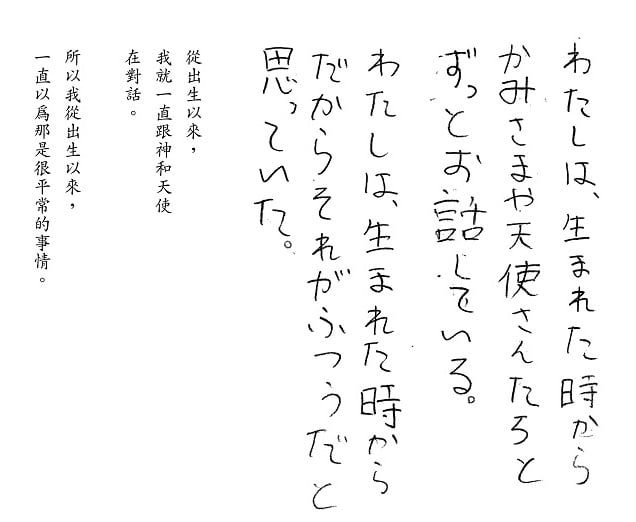 わたしは、生まれた時から
かみさまや天使さんたちと
ずっとお話している。
わたしは、生まれた時から
だからそれがふつうだと
思っていた。
從出生以來，
我就一直跟神和天使
在對話。
所以我從出生以來，
一直以爲那是很平常的事情。